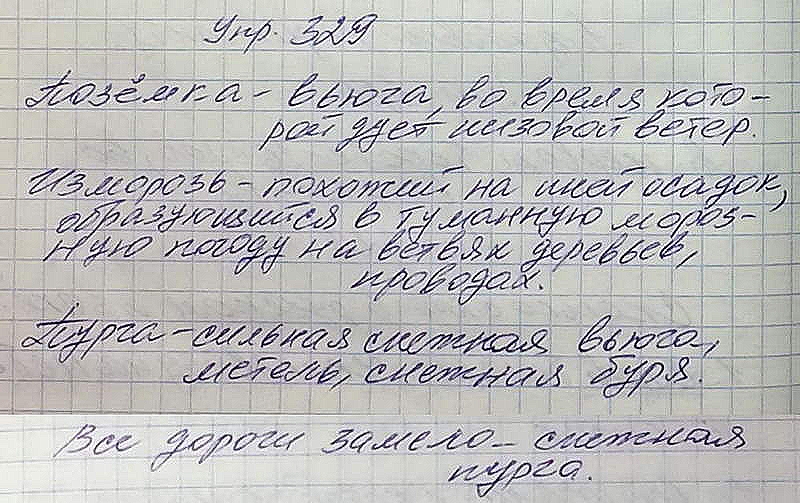 Упр. 329
Позёмка - вьюга, во время кото-
рой дует низовой ветер.
Изморозь - похожий на иней осадок,
образующийся в туманную мороз-
ную погоду на ветвях деревьев,
проводах.
Пурга - сильная снежная вьюга,
метель, снежная буря.
Все дороги замело - снежная
пурга.